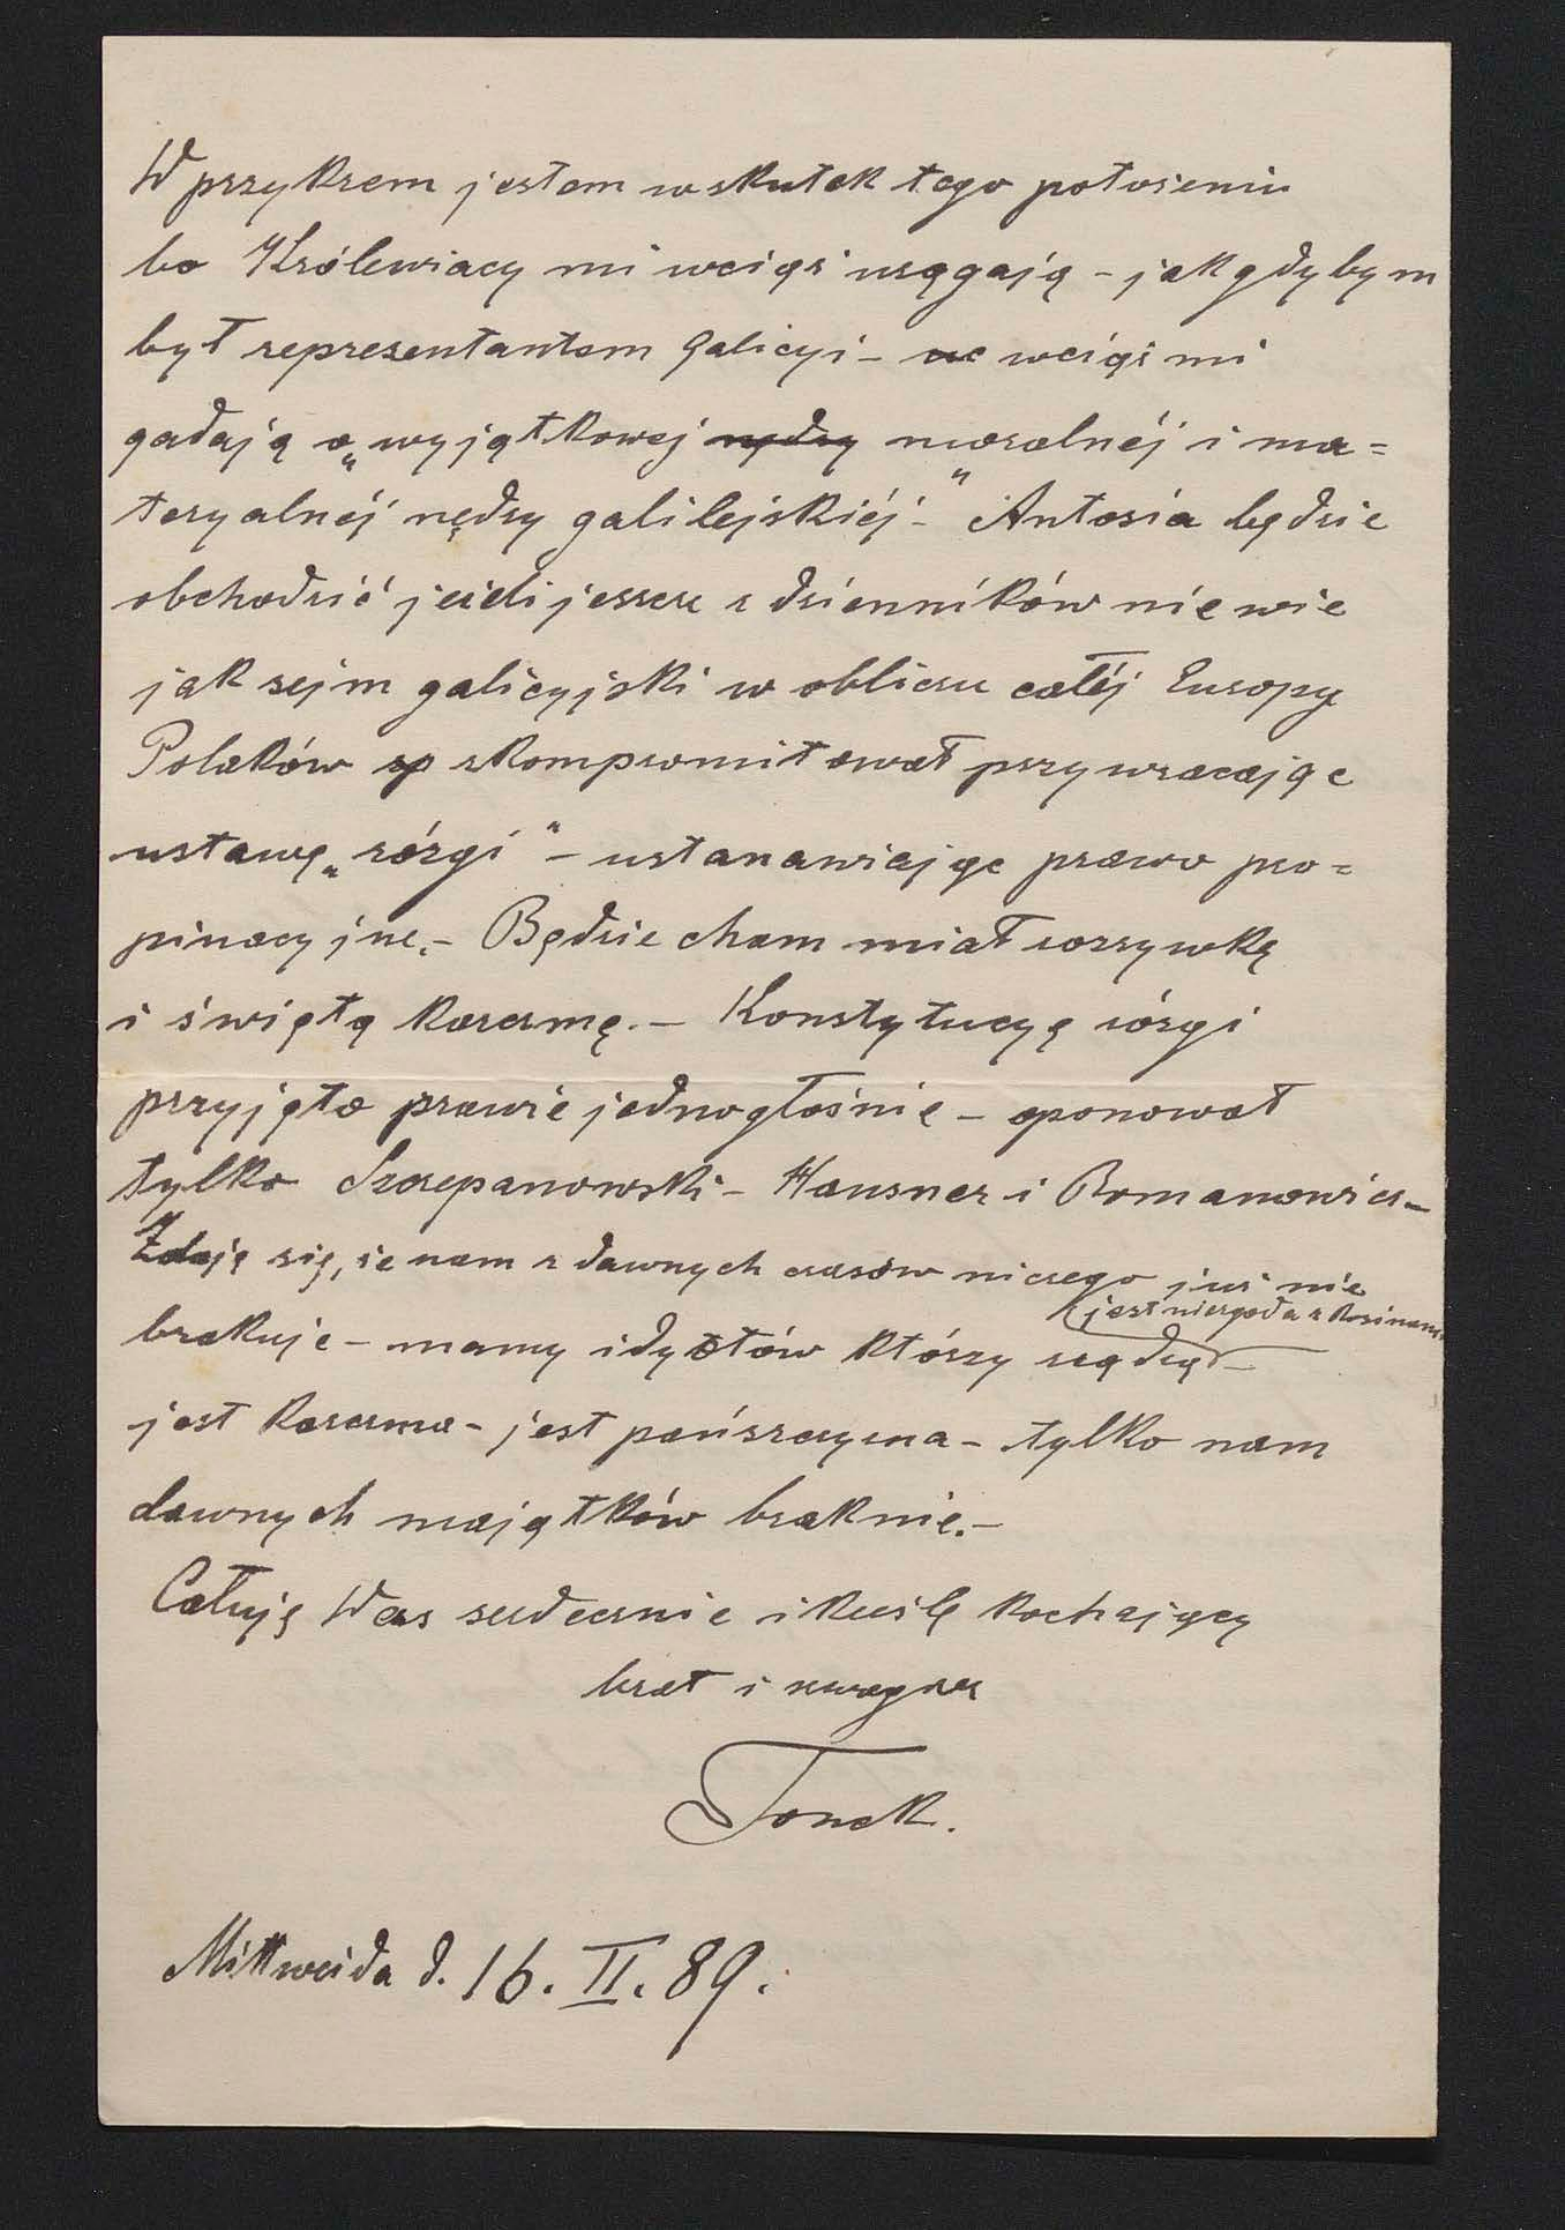 W przykrem jestem wskutek tego położeniu
bo Królewiacy mi wciąż urągają – jak gdybym
był reprezentantem Galicyi – wciąż mi
gadają o „wyjątkowej nędzy moralnéj i ma=
teryalnéj nędzy galilejskiéj –" Antosia będzie
obchodzić jeżeli jeszcze z dzienników nie wie
jak sejm galicyjski w obliczu całéj Europy
Polaków skompromitował przywracając
ustawę „rózgi" – ustanawiając prawo pro=
pinacyjne. – Będzie cham miał rozrywkę
i świętą karczmę. – Konstytucyę rózgi
przyjęto prawie jednogłośnie – oponował
tylko Szczepanowski – Hausner i Romanowicz –
Zdaję się, że nam z dawnych czasów niczego już nie
jest niezgoda z Rusinami
brakuje – mamy idyotów którzy rządzą –
jest karczma – jest pańszczyzna – tylko nam
dawnych majątków braknie. –
Całuję Was serdecznie i kreślę kochający
brat i szwagier
Tonek.
Mittweida d. 16. II. 89.